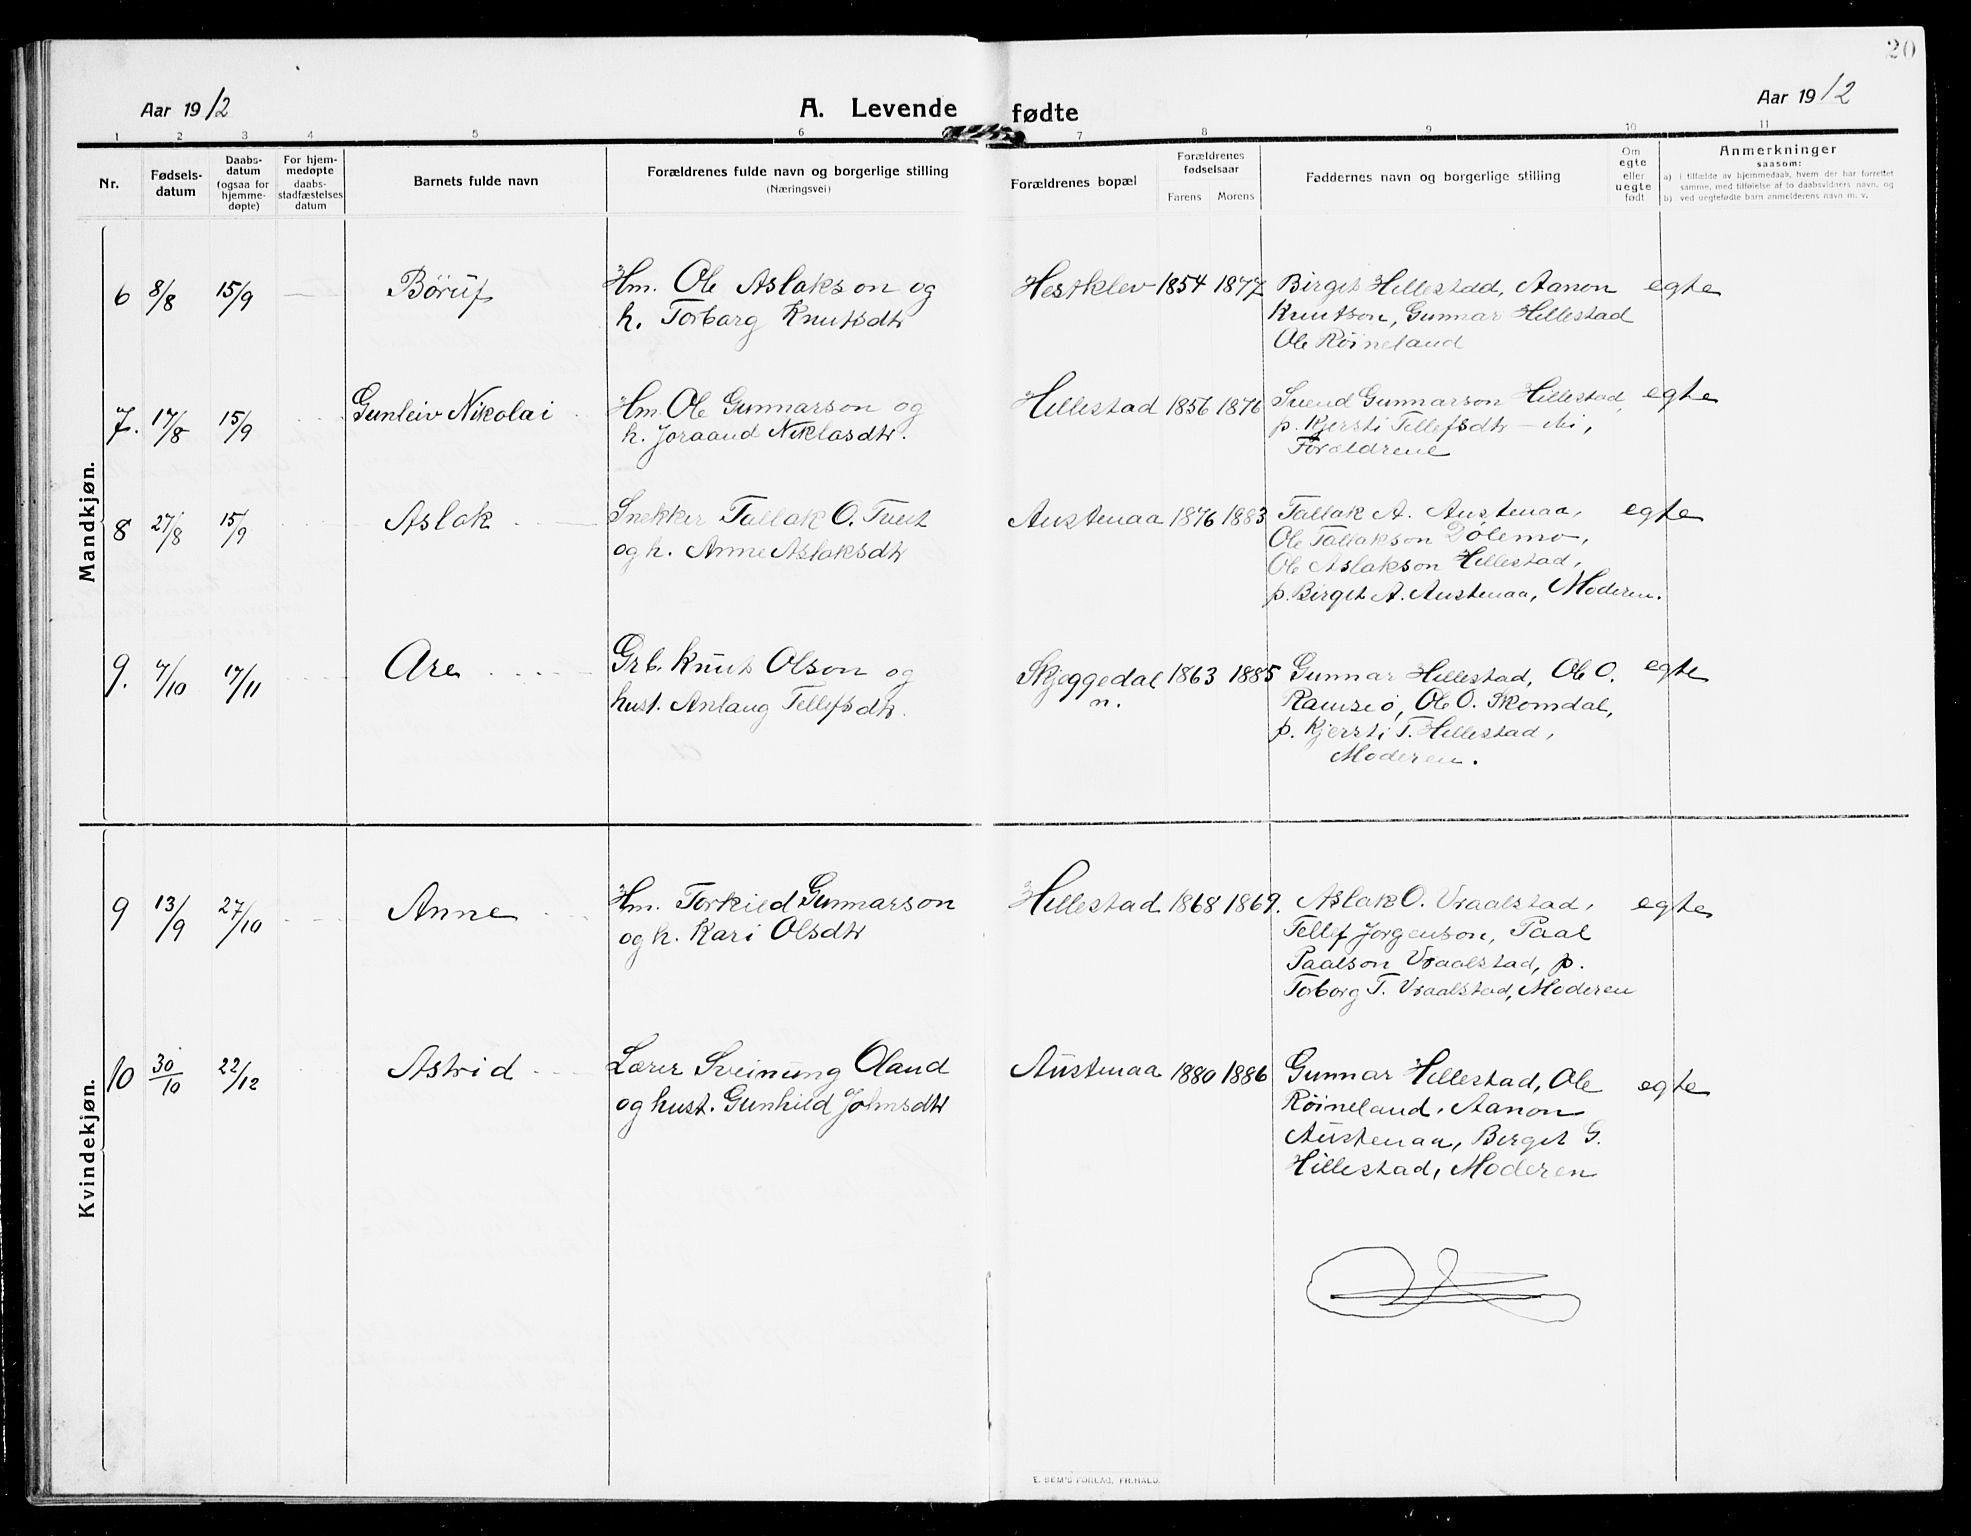 20
Aar 1912
A. Levende fødte
Aar 1912
1 2 3 4 5 6 7 8 9 10 11
Nr.
Fødsels-
datum
Daabs-
datum
(ogsaa for
hjemme-
døpte)
For hjem-
medøpte
daabs-
stadfæstelses
datum
Barnets fulde navn
Forældrenes fulde navn og borgerlige stilling
(Næringsvei)
Forældrenes bopæl
Forældrenes
fødselsaar
Farens Morens
Faddernes navn og borgerlige stilling
Om
egte
eller
uegte
født
Anmerkninger
saasom:
a) i tilfælde av hjemmedaab, hvem der har forrettet
samme, med tilføielse af to daabsvidners navn, og
b) ved uegtefødte barn anmelderens navn m. v.
Mandkjøn.
6 8/8 15/9 — Børuf
Hm. Ole Aslakson og
h. Torborg Knutsdtr
Hestklev 1854 1877
Birget Hillestad, Aanon
Knutson, Gunnar Hillestad
Ole Røineland
egte
7. 17/8 15/9 Gunleiv Nikolai
Hm. Ole Gunnarson og
h. Joraand Niklasdtr.
Hillestad 1856 1876
Svend Gunnarson Hillestad,
p. Kjersti Tellefsdtr
Forældrene
egte
8 27/8 15/9 Aslak
Snekker Tallak O. Tveit
og h. Anne Aslaksdtr
Austenaa 1876 1883
Tallak A. Austenaa,
Ole Tallakson Dølemo,
Ole Aslakson Hillestad,
p. Birget A. Austenaa, Moderen.
egte
9. 7/10 17/11 Are
Grb. Knut Olson og
hust. Aslaug Tellefsdtr.
Skjeggedal 1863 1885
n.
Gunnar Hillestad, Ole O.
Ramseø, Ole O. Skomdal,
p. Kjersti T. Hillestad,
Moderen.
egte
Kvindekjøn.
9 13/9 27/10 Anne
Hm. Torkild Gunnarson
og h. Kari Olsdtr
Hillestad 1868 1869.
Aslak O. Vraalstad,
Tellef Jorgenson, Paal
Paalson Vraalstad, p.
Torborg T. Vraalstad, Moderen
egte
10 30/10 22/12 Astrid
Lærer Sveinung Oland
og hust. Gunhild Johnsdtr
Austenaa 1880 1886
Gunnar Hillestad, Ole
Røineland, Aanon
Austenaa, Berget G.
Hillestad, Moderen
egte
E. SEM'S FORLAG, FR.HALD.